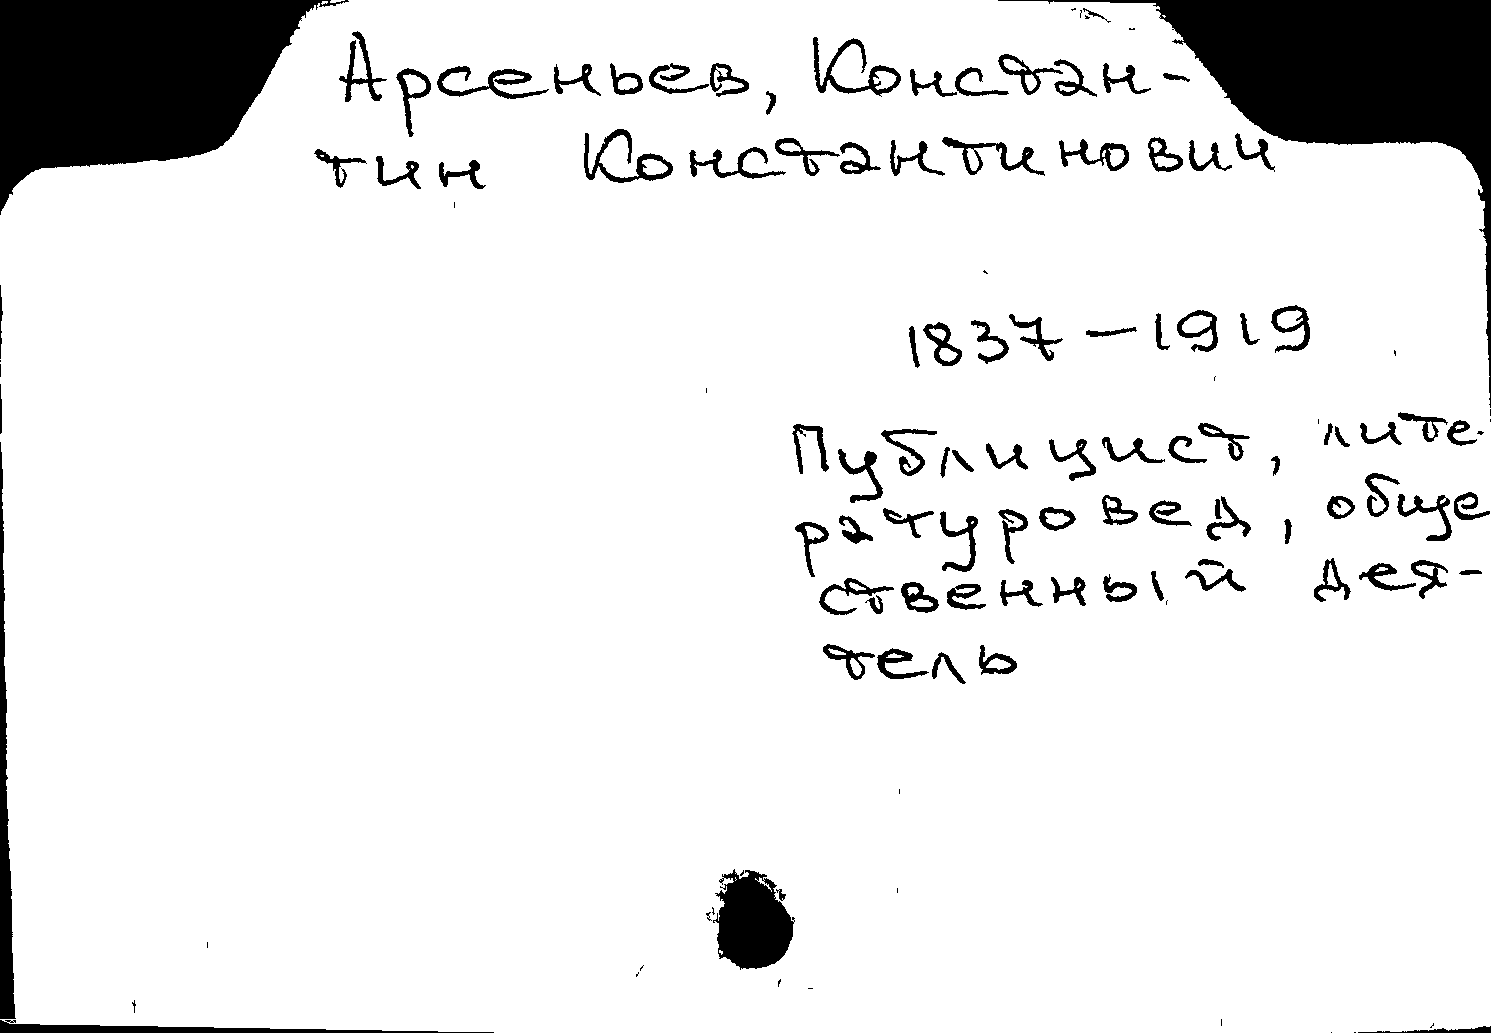 Арсеньев, Констан-
тин Константинович
1837-1919
Публицист, лите-
ратуровед, обще
ственный дея-
тель